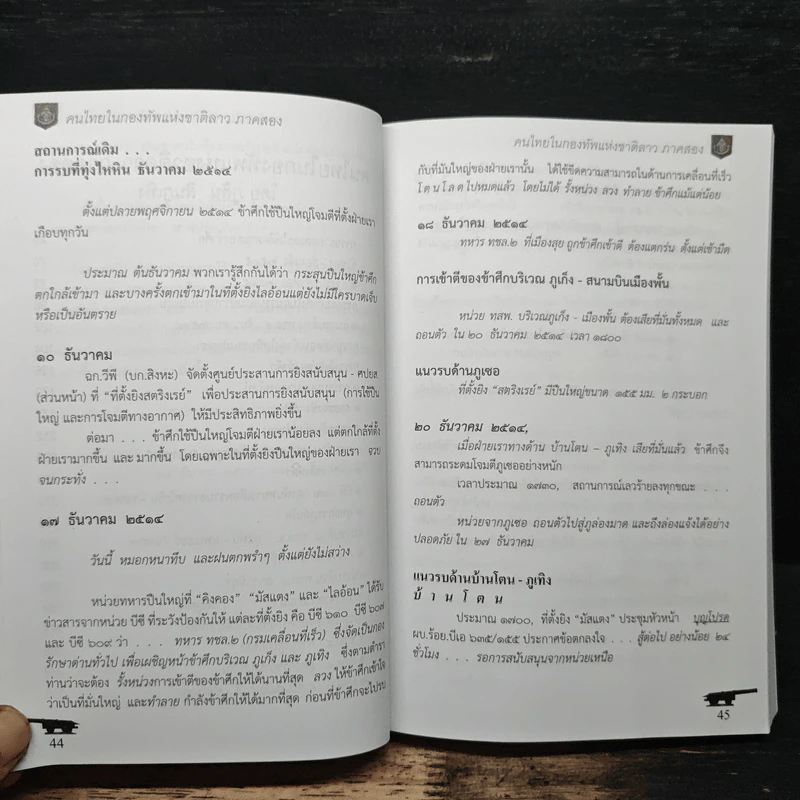 คนไทยในกองทัพแห่งชาติลาว ภาคสอง
สถานการณ์เดิม . . .
การรบที่ทุ่งไหหิน ธันวาคม ๒๕๑๔
ตั้งแต่ปลายพฤศจิกายน ๒๕๑๔ ข้าศึกใช้ปืนใหญ่โจมตีที่ตั้งฝ่ายเรา
เกือบทุกวัน
ประมาณ ต้นธันวาคม พวกเรารู้สึกกันได้ว่า กระสุนปืนใหญ่ข้าศึก
ตกใกล้เข้ามา และบางครั้งตกเข้ามาในที่ตั้งยิงไลอ้อนแต่ยังไม่มีใครบาดเจ็บ
หรือเป็นอันตราย
๑๐ ธันวาคม
ฉก.วีพี (บก.สิงหะ) จัดตั้งศูนย์ประสานการยิงสนับสนุน - ศปยส.
(ส่วนหน้า) ที่ “ที่ตั้งยิงสตริงเรย์” เพื่อประสานการยิงสนับสนุน (การใช้ปืน
ใหญ่ และการโจมตีทางอากาศ) ให้มีประสิทธิภาพยิ่งขึ้น
ต่อมา . . . ข้าศึกใช้ปืนใหญ่โจมตีฝ่ายเราน้อยลง แต่ตกใกล้ที่ตั้ง
ฝ่ายเรามากขึ้น และ มากขึ้น โดยเฉพาะในที่ตั้งยิงปืนใหญ่ของฝ่ายเรา จวบ
จนกระทั่ง . . .
๑๗ ธันวาคม ๒๕๑๔
วันนี้ หมอกหนาทึบ และฝนตกพรำๆ ตั้งแต่ยังไม่สว่าง
หน่วยทหารปืนใหญ่ที่ “คิงคอง” “มัสแตง” และ “ไลอ้อน” ได้รับ
ข่าวสารจากหน่วย บีซี ที่ระวังป้องกันให้ แต่ละที่ตั้งยิง คือ บีซี ๖๑๐ บีซี ๖๐๗
และ บีซี ๖๐๙ ว่า . . . ทหาร ทชล.๒ (กรมเคลื่อนที่เร็ว) ซึ่งจัดเป็นกอง
รักษาด่านทั่วไป เพื่อเผชิญหน้าข้าศึกบริเวณ ภูเก็ง และ ภูเทิง ซึ่งตามตำรา
ท่านว่าจะต้อง รั้งหน่วงการเข้าตีของข้าศึกให้ได้นานที่สุด ลวง ให้ข้าศึกเข้าใจ
ว่าเป็นที่มั่นใหญ่ และทำลาย กำลังข้าศึกให้ได้มากที่สุด ก่อนที่ข้าศึกจะไปรบ
44
คนไทยในกองทัพแห่งชาติลาว ภาคสอง
กับที่มั่นใหญ่ของฝ่ายเรานั้น ได้ใช้ขีดความสามารถในด้านการเคลื่อนที่เร็ว
โ ด น โ ล ด ไปหมดแล้ว โดยไม่ได้ รั้งหน่วง ลวง ทำลาย ข้าศึกแม้แต่น้อย
๑๘ ธันวาคม ๒๕๑๔
ทหาร ทชล.๒ ที่เมืองสุย ถูกข้าศึกเข้าตี ต้องแตกร่น ตั้งแต่เช้ามืด
การเข้าตีของข้าศึกบริเวณ ภูเก็ง - สนามบินเมืองพั้น
หน่วย ทสพ. บริเวณภูเก็ง - เมืองพั้น ต้องเสียที่มั่นทั้งหมด และ
ถอนตัว ใน ๒๐ ธันวาคม ๒๕๑๔ เวลา ๑๘๐๐
แนวรบด้านภูเซอ
ที่ตั้งยิง “สตริงเรย์” มีปืนใหญ่ขนาด ๑๕๕ มม. ๒ กระบอก
๒๐ ธันวาคม ๒๕๑๔,
เมื่อฝ่ายเราทางด้าน บ้านโตน – ภูเทิง เสียที่มั่นแล้ว ข้าศึกจึง
สามารถระดมโจมตีภูเซออย่างหนัก
เวลาประมาณ ๑๗๓๐, สถานการณ์เลวร้ายลงทุกขณะ . . .
ถอนตัว
หน่วยจากภูเซอ ถอนตัวไปสู่ภูล่องมาด และถึงล่องแจ้งได้อย่าง
ปลอดภัย ใน ๒๗ ธันวาคม
แนวรบด้านบ้านโตน - ภูเทิง
บ้ า น โ ต น
ประมาณ ๑๗๐๐, ที่ตั้งยิง “มัสแตง” ประชุมหัวหน้า บุญโปรด
ผบ.ร้อย.บีเอ ๖๓๕/๑๕๕ ประกาศข้อตกลงใจ . . . สู้ต่อไป อย่างน้อย ๒๔
ชั่วโมง . . . รอการสนับสนุนจากหน่วยเหนือ
45